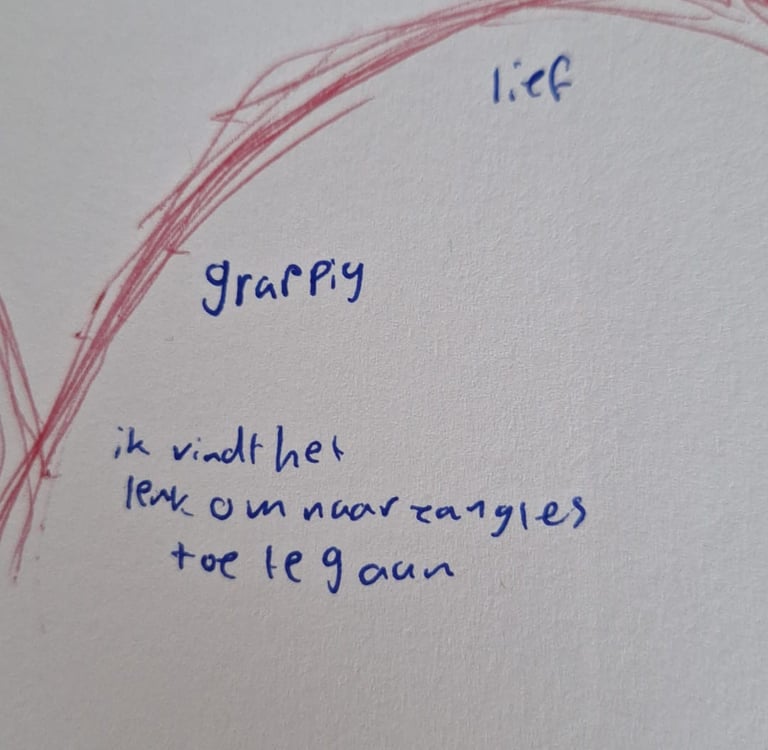 lief
grappig
ik vindt het
leuk om naar zangles
toe te gaan